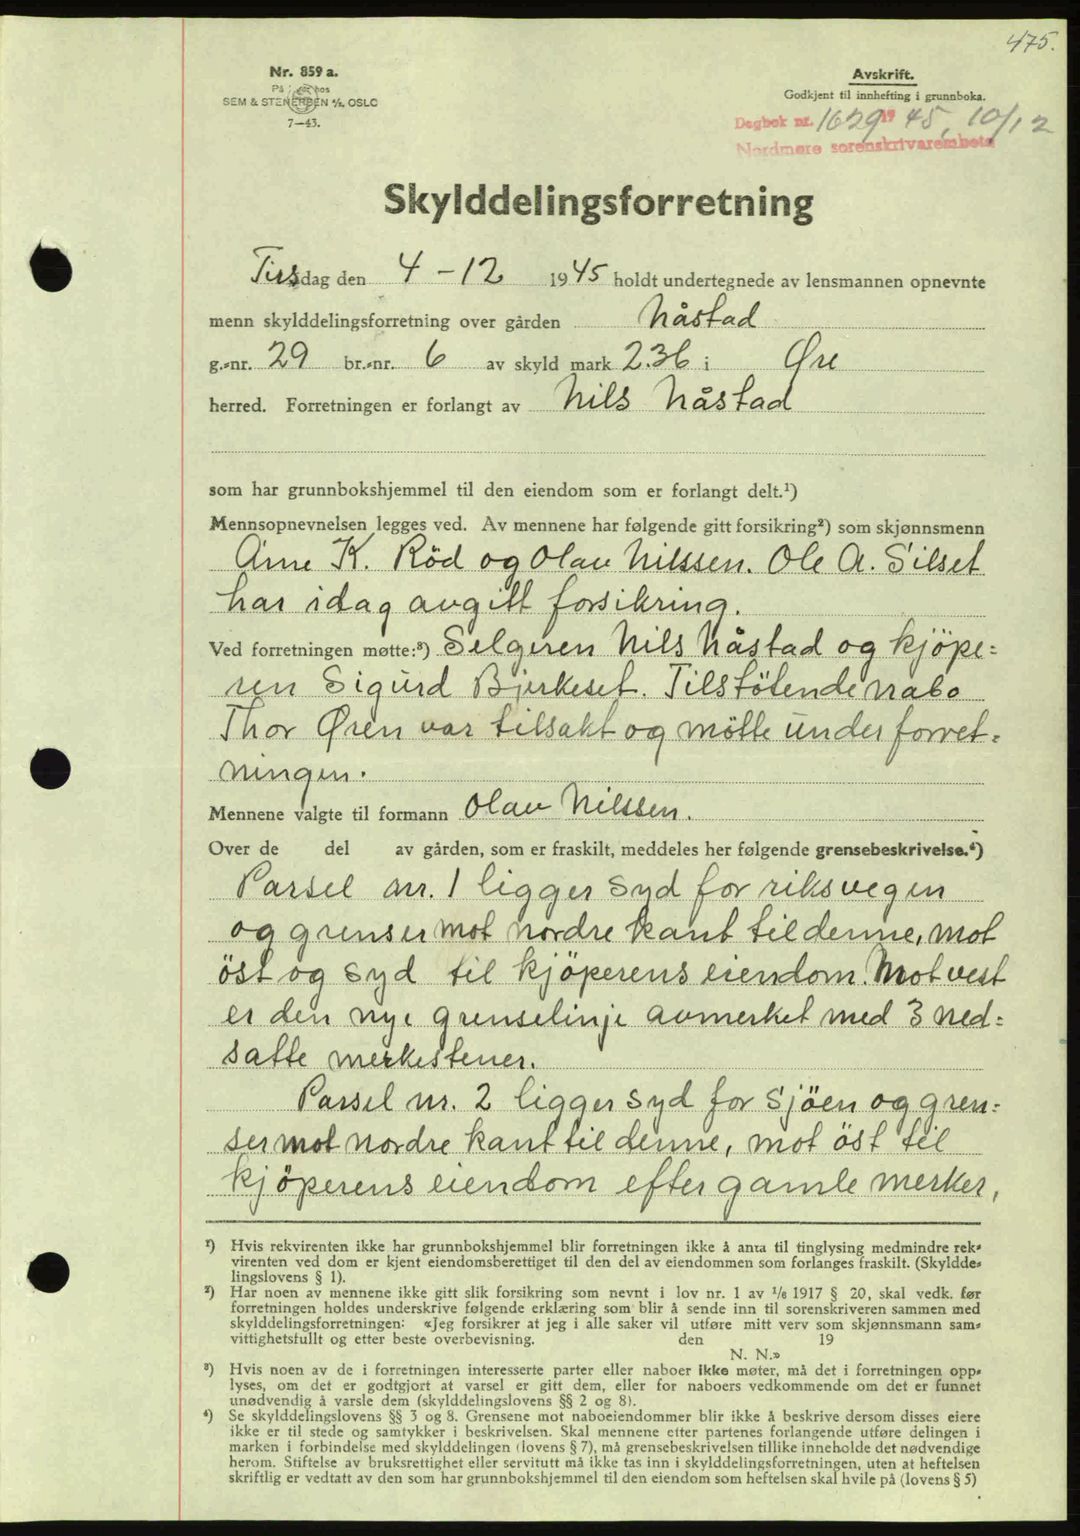 475.
Nr. 859 a.
På lager hos
SEM & STENERSEN A/S, OSLO
7—43.
Avskrift.
Godkjent til innhefting i grunnboka.
Dagbok nr. 1629 1945, 10/12
Nordmøre sorenskrivarembete
Skylddelingsforretning
Tirsdag den 4 - 12 1945 holdt undertegnede av lensmannen opnevnte
menn skylddelingsforretning over gården Nåstad
g.-nr. 29 br.-nr. 6 av skyld mark 2.36 i Øre
herred. Forretningen er forlangt av Nils Nåstad
som har grunnbokshjemmel til den eiendom som er forlangt delt.¹)
Mennsopnevnelsen legges ved. Av mennene har følgende gitt forsikring²) som skjønnsmenn
Arne K. Röd og Olav Nilssen. Ole A. Silset
har idag avgitt forsikring.
Ved forretningen møtte:³) Selgeren Nils Nåstad og kjöpe=
ren Sigurd Bjerkeset. Tilstötende nabo
Thor Øren var tilsakt og mötte under forret=
ningen.
Mennene valgte til formann Olav Nilssen.
Over de del av gården, som er fraskilt, meddeles her følgende grensebeskrivelse.⁴)
Parsel nr. 1 ligger syd for riksvegen
og grenser mot nordre kant til denne, mot
öst og syd til kjöperens eiendom. Mot vest
er den nye grenselinje avmerket med 3 ned=
satte merkestener.
Parsel nr. 2 ligger syd for Sjöen og gren=
ser mot nordre kant til denne, mot öst til
kjöperens eiendom efter gamle merker,
¹) Hvis rekvirenten ikke har grunnbokshjemmel blir forretningen ikke å anta til tinglysing medmindre rek-
virenten ved dom er kjent eiendomsberettiget til den del av eiendommen som forlanges fraskilt. (Skyldde-
lingslovens § 1).
²) Har noen av mennene ikke gitt slik forsikring som nevnt i lov nr. 1 av 1/6 1917 § 20, skal vedk. før
forretningen holdes underskrive følgende erklæring som blir å sende inn til sorenskriveren sammen med
skylddelingsforretningen: «Jeg forsikrer at jeg i alle saker vil utføre mitt verv som skjønnsmann sam-
vittighetsfullt og etter beste overbevisning. den 19
N. N.»
³) Hvis noen av de i forretningen interesserte parter eller naboer ikke møter, må det i forretningen opp-
lyses, om det er godtgjort at varsel er gitt dem, eller for naboers vedkommende om det er funnet
unødvendig å varsle dem (skylddelingslovens §§ 2 og 8).
⁴) Se skylddelingslovens §§ 3 og 8. Grensene mot naboeiendommer blir ikke å beskrive dersom disses eiere
ikke er til stede og samtykker i beskrivelsen. Skal mennene etter partenes forlangende utføre delingen i
marken i forbindelse med skylddelingen (lovens § 7), må grensebeskrivelsen tillike inneholde det nødvendige
herom. Stiftelse av bruksrettighet eller servitutt må ikke tas inn i skylddelingsforretningen, uten at heftelsen
skriftlig er vedtatt av den som har grunnbokshjemmel til den eiendom som heftelsen skal hvile på (lovens § 5)